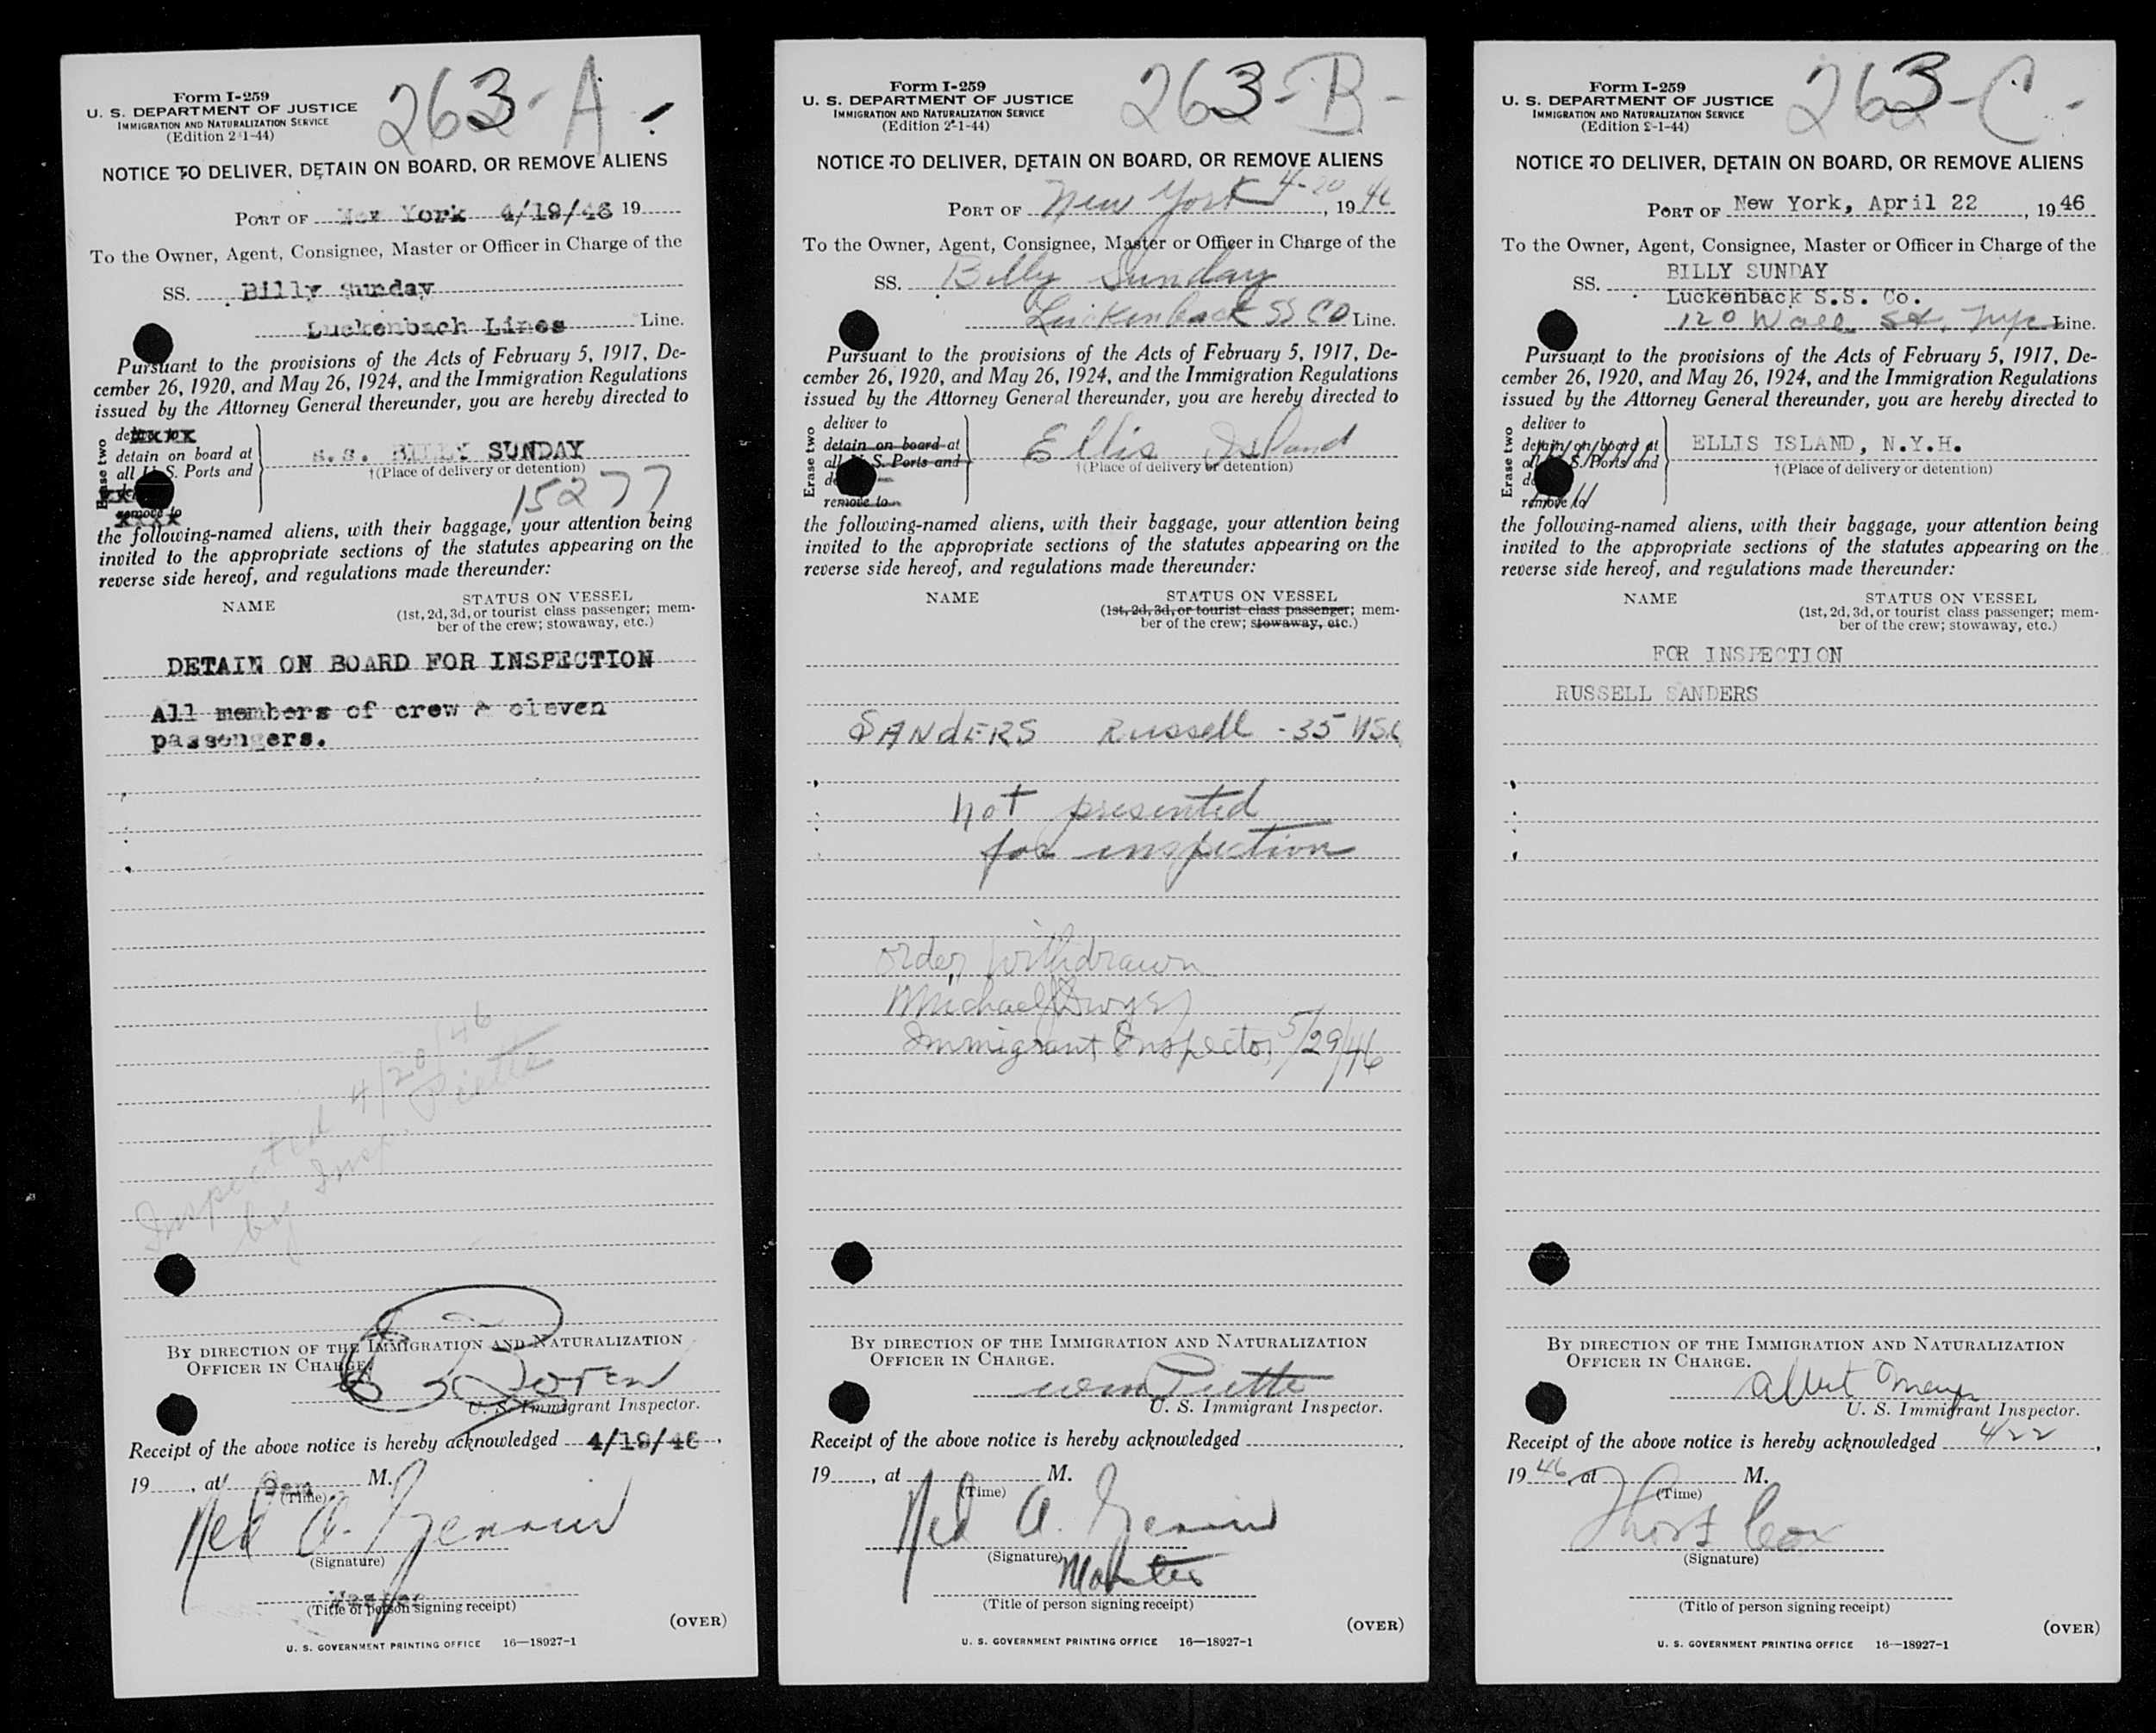 Form I-259
U. S. DEPARTMENT OF JUSTICE
IMMIGRATION AND NATURALIZATION SERVICE
(Edition 2-1-44)
263-A
NOTICE TO DELIVER, DETAIN ON BOARD, OR REMOVE ALIENS
PORT OF New York 4/19/46 19
To the Owner, Agent, Consignee, Master or Officer in Charge of the
SS. Billy Sunday
Luckenbach Lines Line.
Pursuant to the provisions of the Acts of February 5, 1917, De-
cember 26, 1920, and May 26, 1924, and the Immigration Regulations
issued by the Attorney General thereunder, you are hereby directed to
Erase two
detain on board at
all U. S. Ports and
remove to
S.S. BILLY SUNDAY
†(Place of delivery or detention)
15277
the following-named aliens, with their baggage, your attention being
invited to the appropriate sections of the statutes appearing on the
reverse side hereof, and regulations made thereunder:
NAME
STATUS ON VESSEL
(1st, 2d, 3d, or tourist class passenger; mem-
ber of the crew; stowaway, etc.)
DETAIN ON BOARD FOR INSPECTION
All members of crew & eleven
passengers.
Inspected 4/20/46
by Insp. Piette
BY DIRECTION OF THE IMMIGRATION AND NATURALIZATION
OFFICER IN CHARGE.
U. S. Immigrant Inspector.
Receipt of the above notice is hereby acknowledged 4/19/46,
19, at 9am M.
(Time)
Ned A.
(Signature)
Master
(Title of person signing receipt)
(OVER)
U. S. GOVERNMENT PRINTING OFFICE 16—18927-1
Form I-259
U. S. DEPARTMENT OF JUSTICE
IMMIGRATION AND NATURALIZATION SERVICE
(Edition 2-1-44)
263-B-
NOTICE TO DELIVER, DETAIN ON BOARD, OR REMOVE ALIENS
PORT OF New York 4-20, 1946
To the Owner, Agent, Consignee, Master or Officer in Charge of the
SS. Billy Sunday
Luckenback SS CO Line.
Pursuant to the provisions of the Acts of February 5, 1917, De-
cember 26, 1920, and May 26, 1924, and the Immigration Regulations
issued by the Attorney General thereunder, you are hereby directed to
Erase two
deliver to
detain on board at
all U. S. Ports and
remove to
Ellis Island
†(Place of delivery or detention)
the following-named aliens, with their baggage, your attention being
invited to the appropriate sections of the statutes appearing on the
reverse side hereof, and regulations made thereunder:
NAME
STATUS ON VESSEL
(1st, 2d, 3d, or tourist class passenger; mem-
ber of the crew; stowaway, etc.)
SANDERS Russell - 35 USC
not presented
for inspection
order withdrawn
Michael J Dwyer
Immigrant Inspector 5/29/46
BY DIRECTION OF THE IMMIGRATION AND NATURALIZATION
OFFICER IN CHARGE.
Wm Piette
U. S. Immigrant Inspector.
Receipt of the above notice is hereby acknowledged
19, at M.
(Time)
Ned A.
(Signature)
Master
(Title of person signing receipt)
(OVER)
U. S. GOVERNMENT PRINTING OFFICE 16—18927-1
Form I-259
U. S. DEPARTMENT OF JUSTICE
IMMIGRATION AND NATURALIZATION SERVICE
(Edition 2-1-44)
263-C-
NOTICE TO DELIVER, DETAIN ON BOARD, OR REMOVE ALIENS
PORT OF New York, April 22, 1946
To the Owner, Agent, Consignee, Master or Officer in Charge of the
SS. BILLY SUNDAY
Luckenback S.S. Co.
120 Wall St, Nyc Line.
Pursuant to the provisions of the Acts of February 5, 1917, De-
cember 26, 1920, and May 26, 1924, and the Immigration Regulations
issued by the Attorney General thereunder, you are hereby directed to
Erase two
deliver to
detain on board at
all U. S. Ports and
remove to
ELLIS ISLAND, N.Y.H.
†(Place of delivery or detention)
the following-named aliens, with their baggage, your attention being
invited to the appropriate sections of the statutes appearing on the
reverse side hereof, and regulations made thereunder:
NAME
STATUS ON VESSEL
(1st, 2d, 3d, or tourist class passenger; mem-
ber of the crew; stowaway, etc.)
FOR INSPECTION
RUSSELL SANDERS
BY DIRECTION OF THE IMMIGRATION AND NATURALIZATION
OFFICER IN CHARGE.
Albert
U. S. Immigrant Inspector.
Receipt of the above notice is hereby acknowledged 4/22,
1946, at M.
(Time)
(Signature)
(Title of person signing receipt)
(OVER)
U. S. GOVERNMENT PRINTING OFFICE 16—18927-1